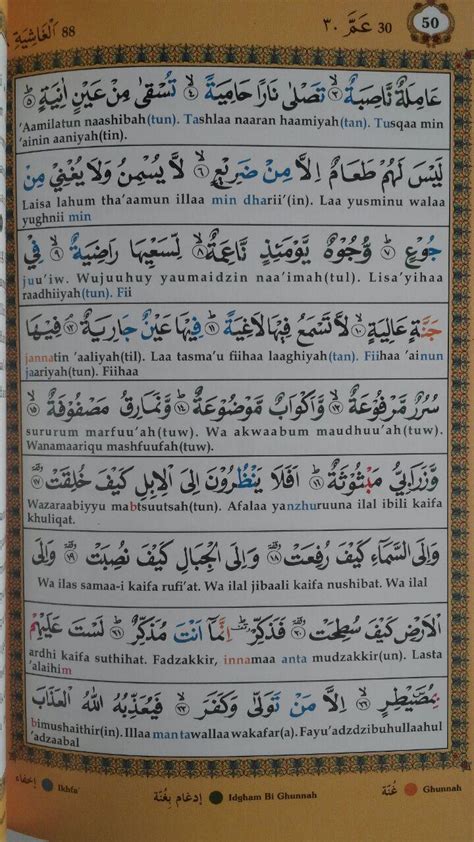 88 اَلْغَاشِيَةِ
30 عَمَّ ٣٠
50
عَامِلَةٌ نَّاصِبَةٌ ۙ ٣ تَصْلٰى نَارًا حَامِيَةً ۙ ٤ تُسْقٰى مِنْ عَيْنٍ اٰنِيَةٍ ۗ ٥
'Aamilatun naashibah(tun). Tashlaa naaran haamiyah(tan). Tusqaa min
'ainin aaniyah(tin).
لَيْسَ لَهُمْ طَعَامٌ اِلَّا مِنْ ضَرِيْعٍ ۙ ٦ لَّا يُسْمِنُ وَلَا يُغْنِيْ مِنْ
Laisa lahum tha'aamun illaa min dharii'(in). Laa yusminu walaa
yughnii min
جُوْعٍ ۗ ٧ وُجُوْهٌ يَّوْمَىِٕذٍ نَّاعِمَةٌ ۙ ٨ لِّسَعْيِهَا رَاضِيَةٌ ۙ ٩ فِيْ
juu'iw. Wujuuhuy yaumaidzin naa'imah(tul). Lisa'yihaa
raadhiiyah(tun). Fii
جَنَّةٍ عَالِيَةٍ ۙ ١٠ لَّا تَسْمَعُ فِيْهَا لَاغِيَةً ۗ ١١ فِيْهَا عَيْنٌ جَارِيَةٌ ۘ ١٢ فِيْهَا
jannatin 'aaliyah(til). Laa tasma'u fiihaa laaghiyah(tan). Fiihaa 'ainun
jaariyah(tun). Fiihaa
سُرُرٌ مَّرْفُوْعَةٌ ۙ ١٣ وَّاَكْوَابٌ مَّوْضُوْعَةٌ ۙ ١٤ وَّنَمَارِقُ مَصْفُوْفَةٌ ۙ ١٥
sururum marfuu'ah(tuw). Wa akwaabum maudhuu'ah(tuw).
Wanamaariqu mashfuufah(tuw).
وَّزَرَابِيُّ مَبْثُوْثَةٌ ۗ ١٦ اَفَلَا يَنْظُرُوْنَ اِلَى الْاِبِلِ كَيْفَ خُلِقَتْ ۗ ١٧
Wazaraabiyyu mabtsuutsah(tun). Afalaa yanzhuruuna ilal ibili kaifa
khuliqat.
وَاِلَى السَّمَاۤءِ كَيْفَ رُفِعَتْ ۗ ١٨ وَاِلَى الْجِبَالِ كَيْفَ نُصِبَتْ ۗ ١٩ وَاِلَى
Wa ilas samaa-i kaifa rufi'at. Wa ilal jibaali kaifa nushibat. Wa ilal
الْاَرْضِ كَيْفَ سُطِحَتْ ۗ ٢٠ فَذَكِّرْ ۗ اِنَّمَآ اَنْتَ مُذَكِّرٌ ۗ ٢١ لَسْتَ عَلَيْهِمْ
ardhi kaifa suthihat. Fadzakkir, innamaa anta mudzakkir(un). Lasta
'alaihim
بِمُصَيْطِرٍ ۙ ٢٢ اِلَّا مَنْ تَوَلّٰى وَكَفَرَ ۙ ٢٣ فَيُعَذِّبُهُ اللّٰهُ الْعَذَابَ
bimushaithir(in). Illaa man tawallaa wakafar(a). Fayu'adzdzibuhullaahul
'adzaabal
إخفاء Ikhfa'
إدغام بغنّة Idgham Bi Ghunnah
غنّة Ghunnah